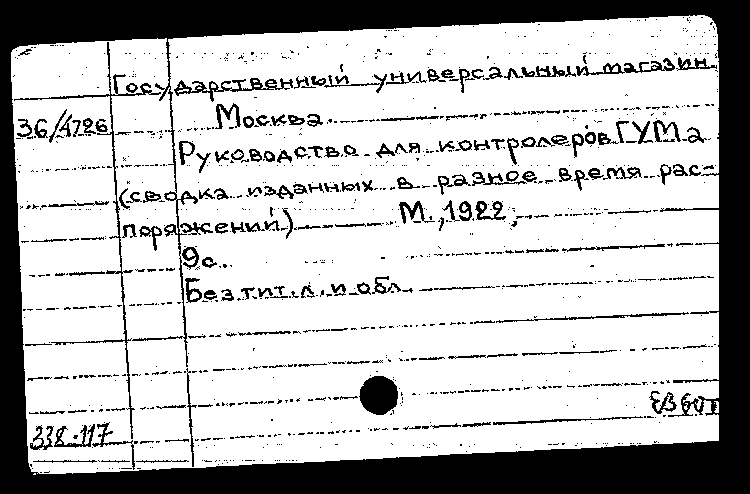 Государственный универсальный магазин.
36/4726 Москва.
Руководство для контролеров ГУМа
(сводка изданных в разное время рас-
поряжений) М., 1922,
9с.
Без тит. л. и обл.
338-117